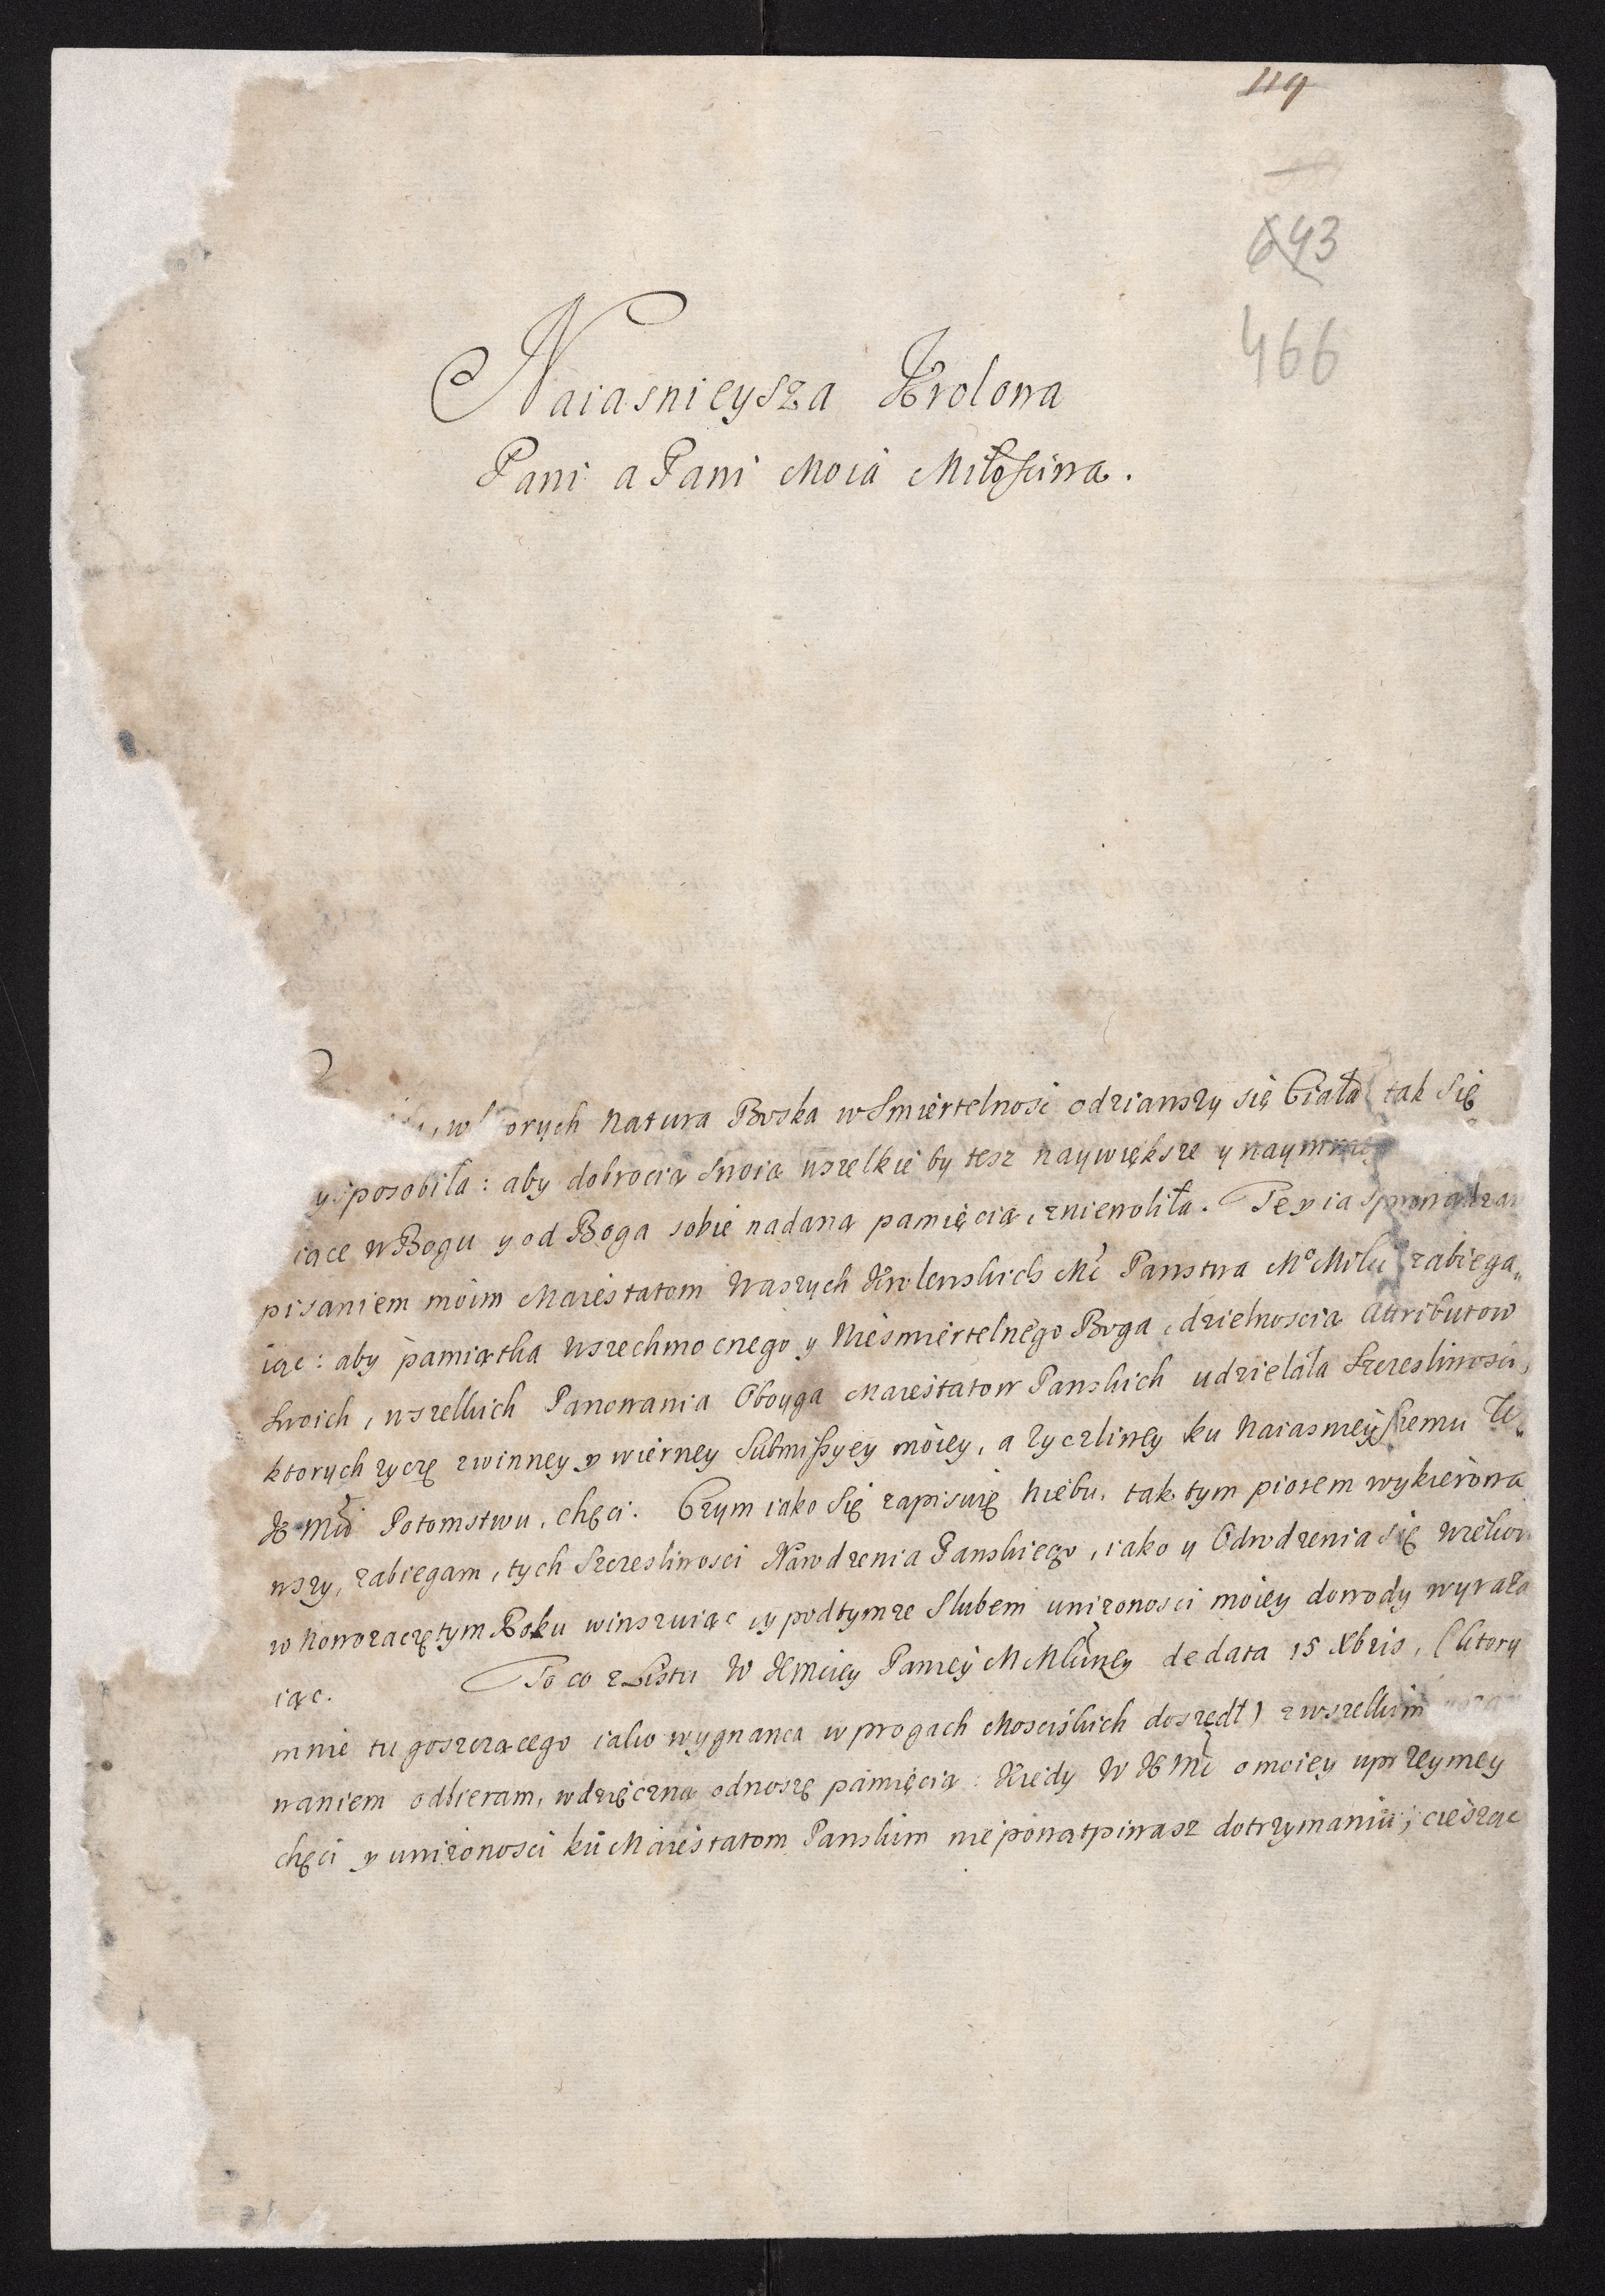 119
643
466
Naiasnieysza Krolowa
Pani a Pani Moia Miłosciwa.
orych Natura Boska w Smiertelnosc odziawszy się Ciała tak się
ysposobiła: aby dobrocią swoią wszelkie by tesz naywiększe y
iące w Bogu y od Boga sobie nadaną pamięcią, zniewoliła. Te y ia
pisaniem moim Maiestatom Waszych Krolewskich Mci Panstwa Mo Miłu zabiega„
iąc: aby pamiątka wszechmocnego y Niesmiertelnego Boga, dzielnoscią Attributow
swoich, wszelkich Panowania Oboyga Maiestatow Panskich udzielała Szczesliwosci,
ktorych zyczę z winney y wierney Submissyey moiey, a zyczliwey ku Naiasnieyszemu W„
K Mci Potomstwu, chęci. Czym iako się zapisuię Niebu, tak tym piorem wykierowa
wszy, zabiegam, tych Szczesliwosci Narodzenia Panskiego, iako y Odrodzenia się
w Nowozaczętym Roku winszuiąc y podtymze Slubem unizonosci moiey dowody wyraża
iąc. To co z Listu W K Mciey Paniey M Mciwey de data 15 Xbris, (ktory
mnie tu goszczącego iako wygnanca w progach Mosciskich doszedł) z wszelkim
waniem odbieram, wdzięczną odnoszę pamięcią: Kiedy W K Mć o moiey uprzeymey
chęci y unizonosci ku Maiestatom Panskim nie powątpiwasz dotrzymaniu, ciesząc